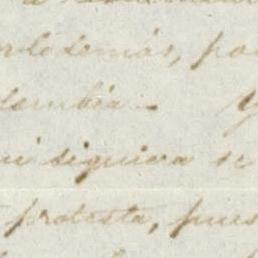 por lo demás, pa
lombia. - Y
ni siquiera se
protesta, pues